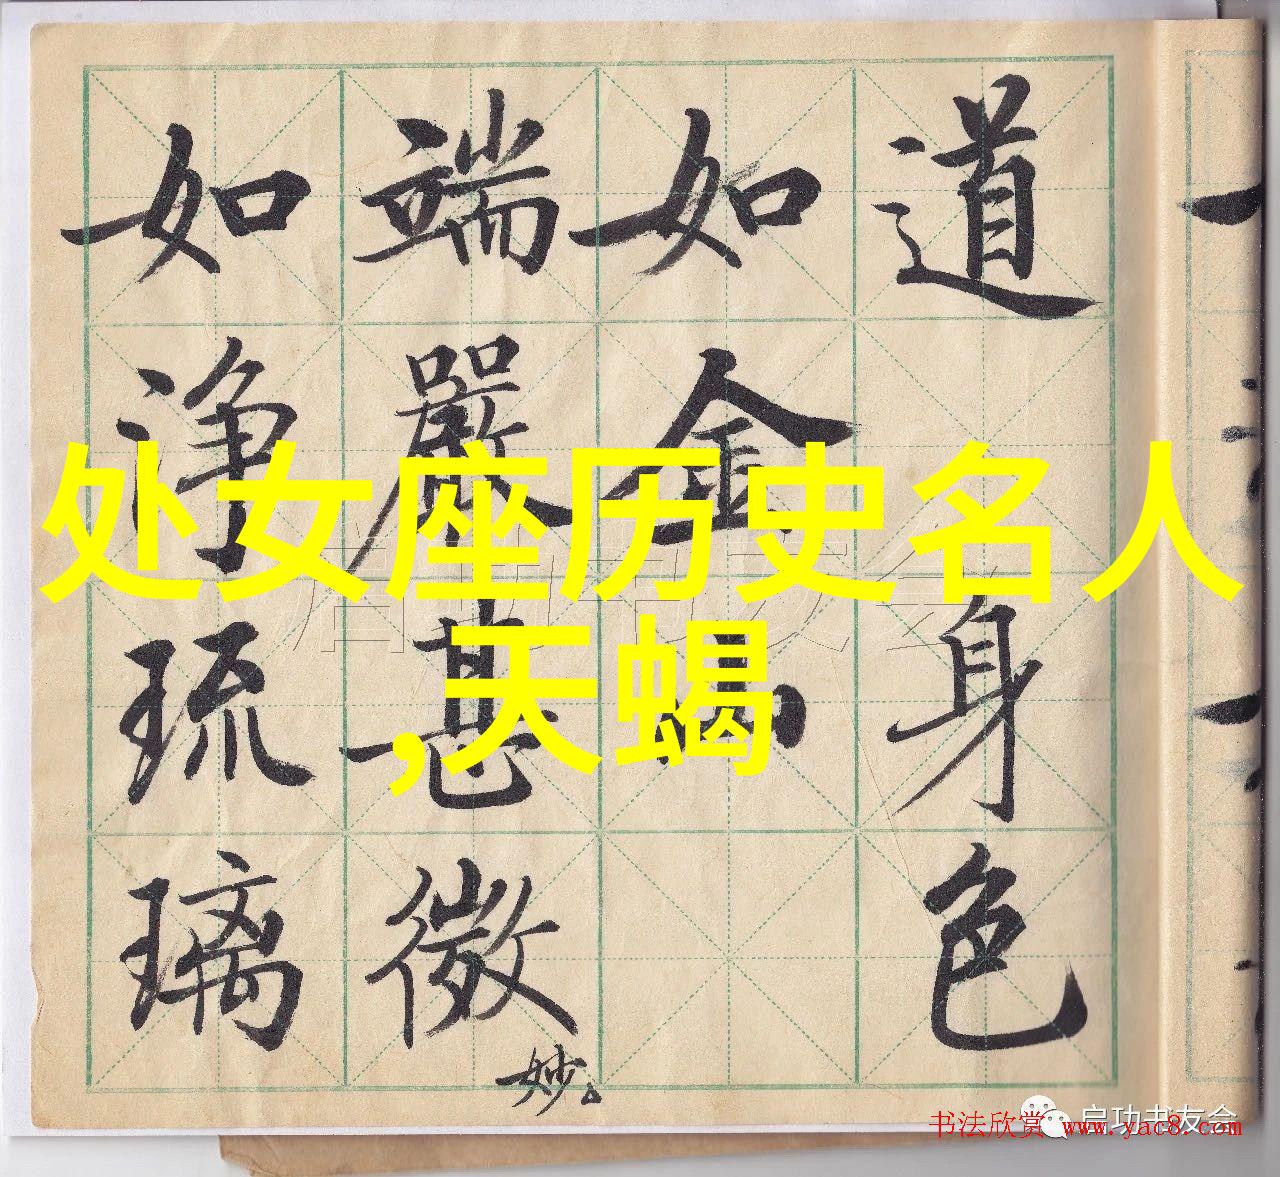 道 身色
如金山
端嚴甚微妙
如淨琉璃
处女座历史名人
,天蝎
启功书友会
启功书友会
书法欣赏 www.yac8.com